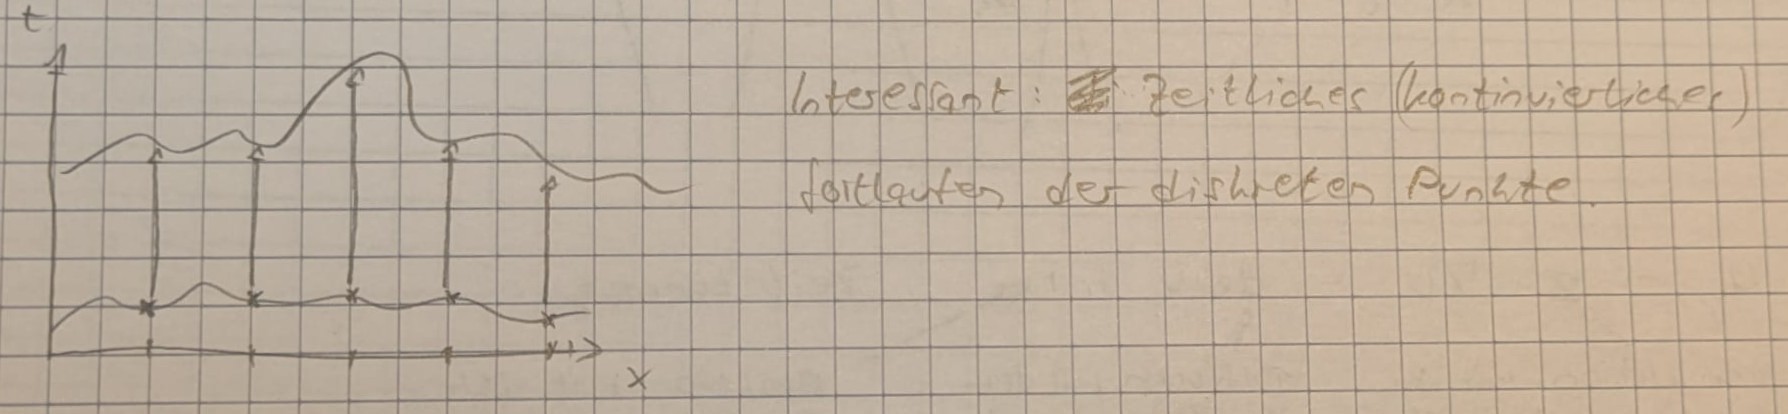 t
Interessant: Zeitliches (kontinuierliches)
fortlaufen der diskreten Punkte.
x